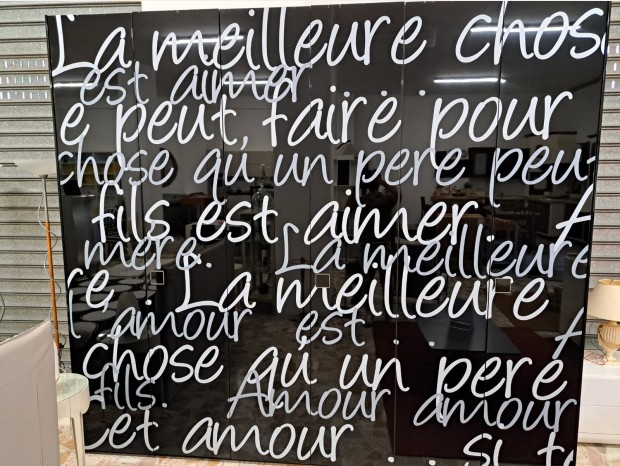 La meilleure chos
est aimer . . .
e peut, faire pour
chose qu'un pere peut
fils est aimer.
mere. La meilleure
e. La meilleure
l'amour est . .
chose qu'un pere
fils. Amour amour
Cet amour . . . si